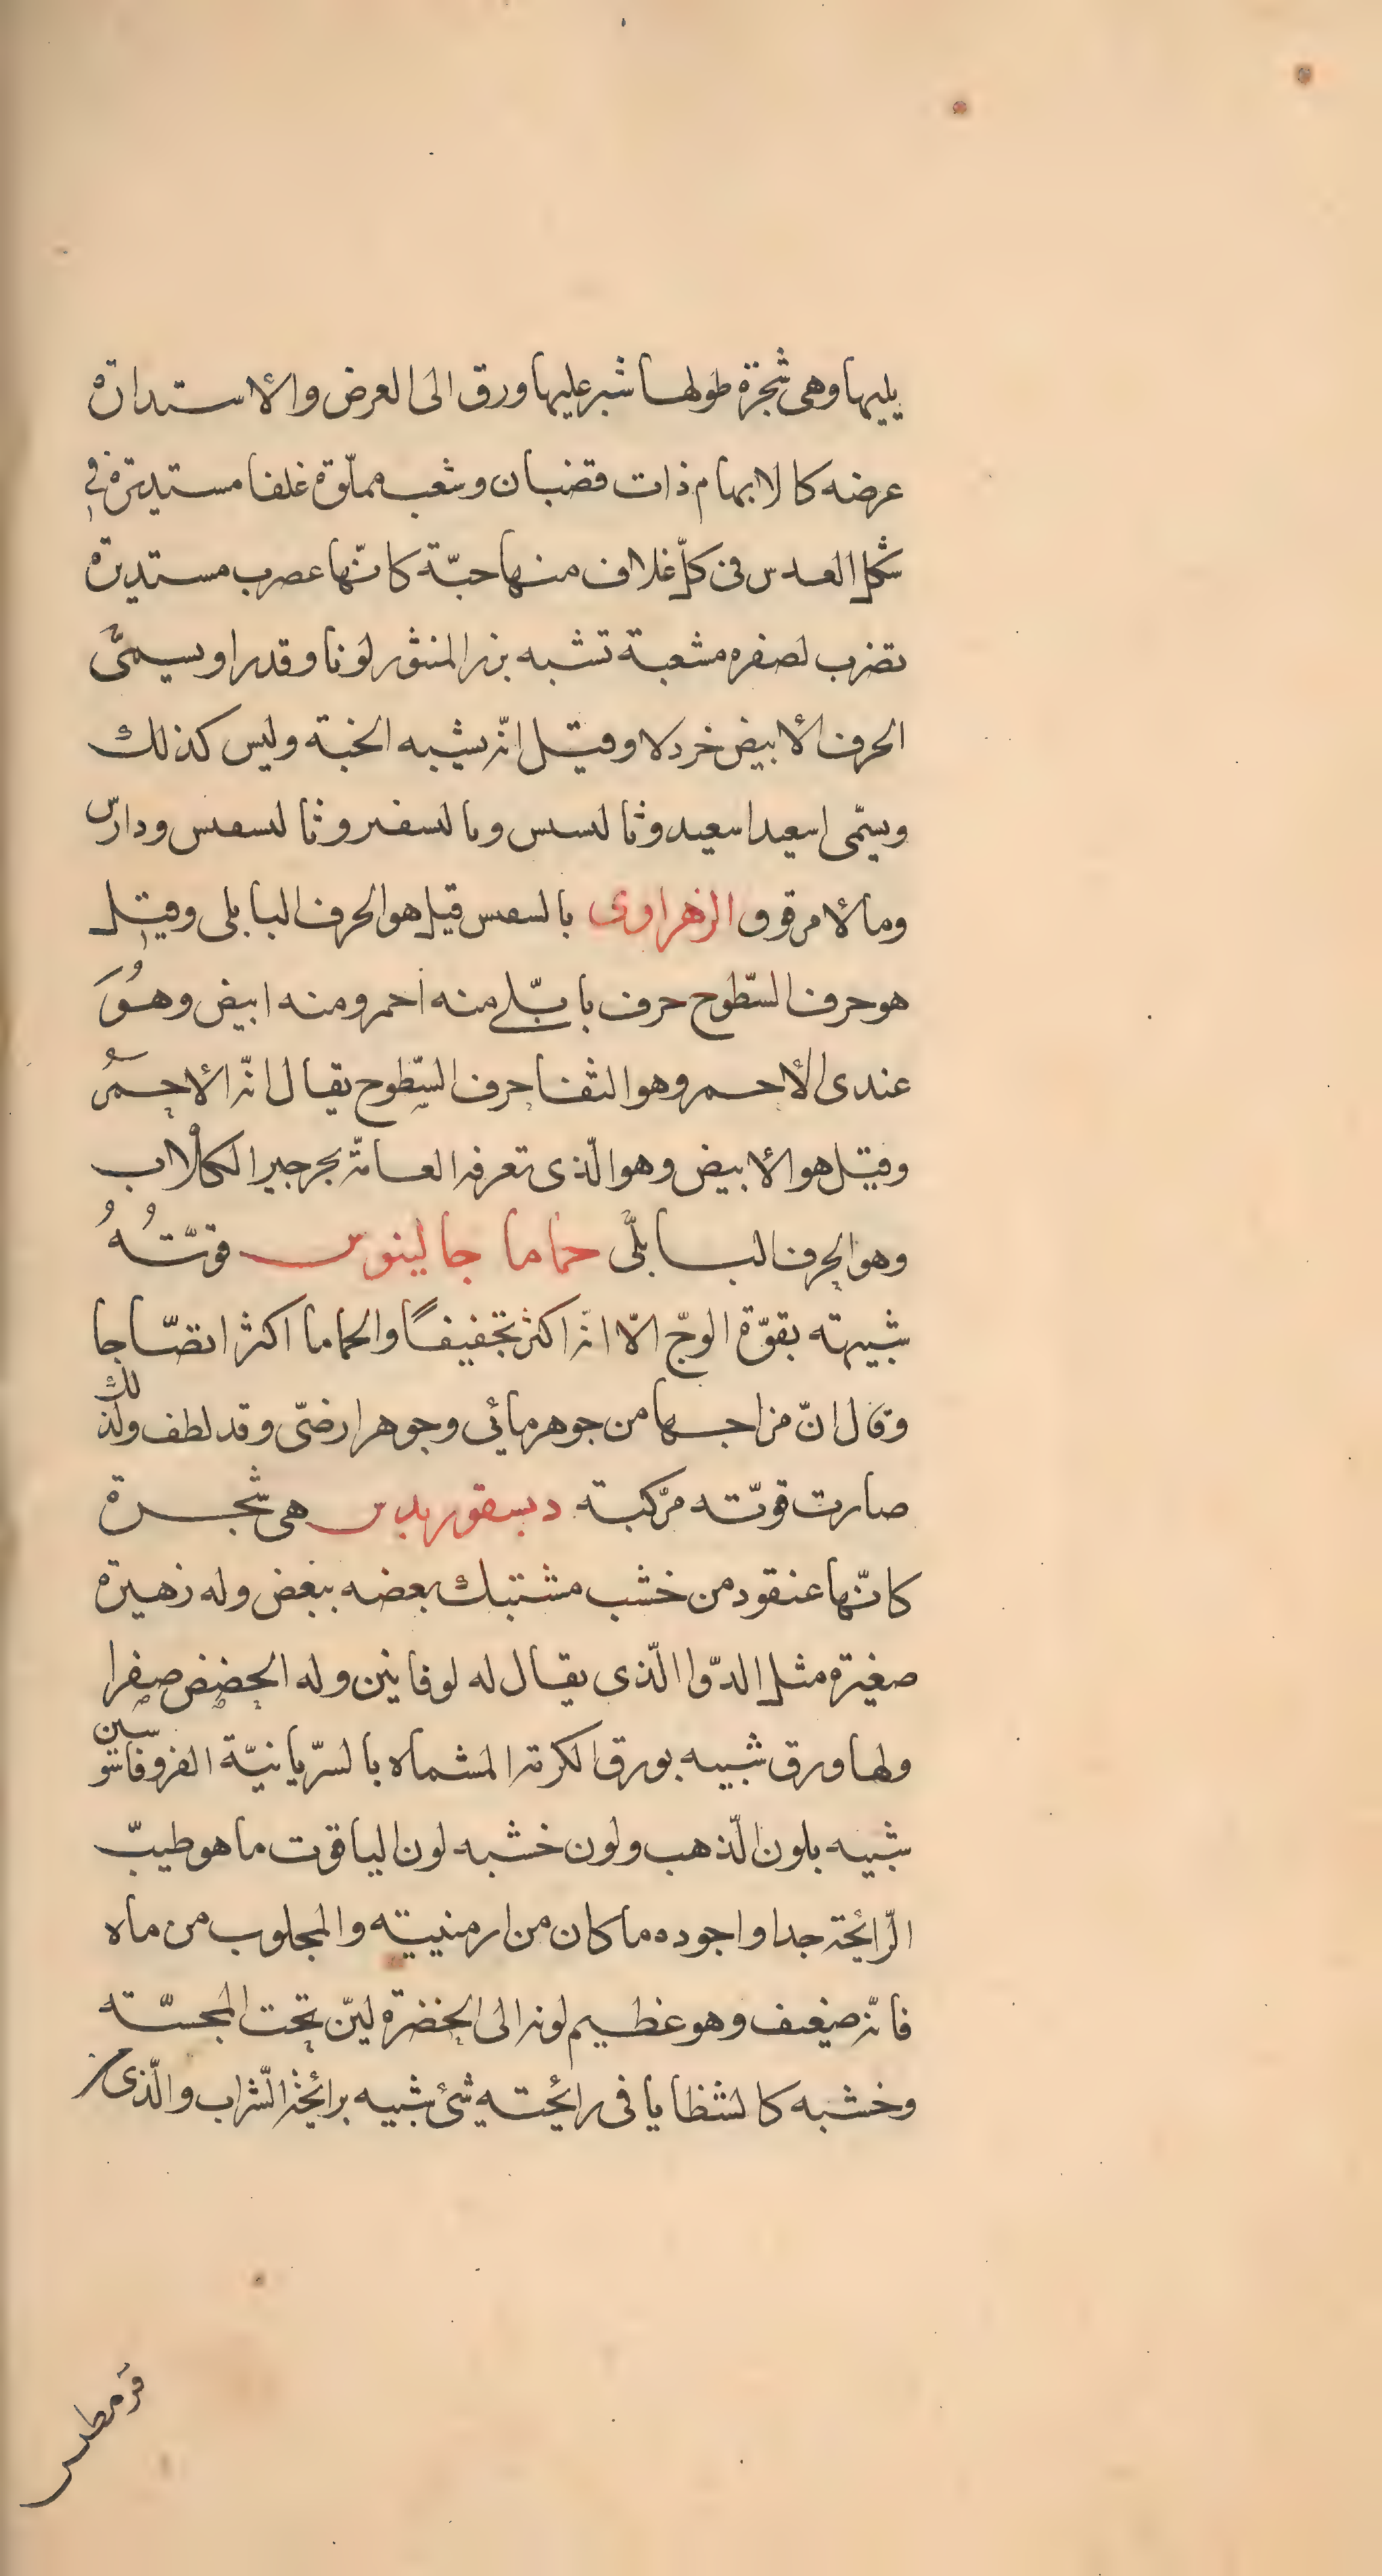 يليها وهى شجرة طولها شبر عليها ورق الى العرض والاستدارة
عرضه كالابهام ذات قضبان وشعب مملوّة غلفا مستديرة فى
شكل العدس فى كلّ غلاف منها حبّة كانّها عصرب مستديرة
تضرب لصفره مشعبة تشبه بزر المنثور لونا وقدرا ويسمىّ
الحرف الأبيض خردلا وقيل انّه يشبه الخبة وليس كذلك
ويسمّى اسعيدا سعيد وثا لسس وما لسفر وثا لسعس ودارس
وما لأمرقوق الزهراوى بالسعس قيل هو الحرف البابلى وقيل
هو حرف السّطوح حرف بابّلي منه أحمر ومنه ابيض وهُوَ
عندى الأحمر وهو الثفا حرف السّطوح يقال انّه الأحمرُ
وقيل هو الأبيض وهو الّذى تعرفه العامّة بجرجير الكلاب
وهو الحرف البابلّى حماما جالينوس قوّتُهُ
شبيهته بقوّة الوجّ الّا انّه اكثر تجفيفًا والحاما اكثر انضّاجا
وقال انّ مزاجها من جوهر مائي وجوهر ارضىّ وقد لطف ولذلك
صارت قوّته مركّبته ديسقوريدس هى شجرة
كانّها عنقود من خشب مشتبك بعضه ببغض وله زهيرة
صغيرة مثل الدّوا الّذى يقال له لوفاينن وله الحضض صفرا
ولها ورق شبيه بورق الكرمة المشماه بالسّريانيّة الفروفاشوسين
شبيه بلون الّذهب ولون خشبه لون الياقوت ما هو طيبّ
الرّائحة جدا واجوده ما كان من ارمنييته والمجلوب من ماه
فانّه صيغف وهو غظيم لونه الى الخضرة ليّن تحت المجسّته
وخشبه كالشظايا فى رائحته شئ شبيه برائحة الشّراب والّذى